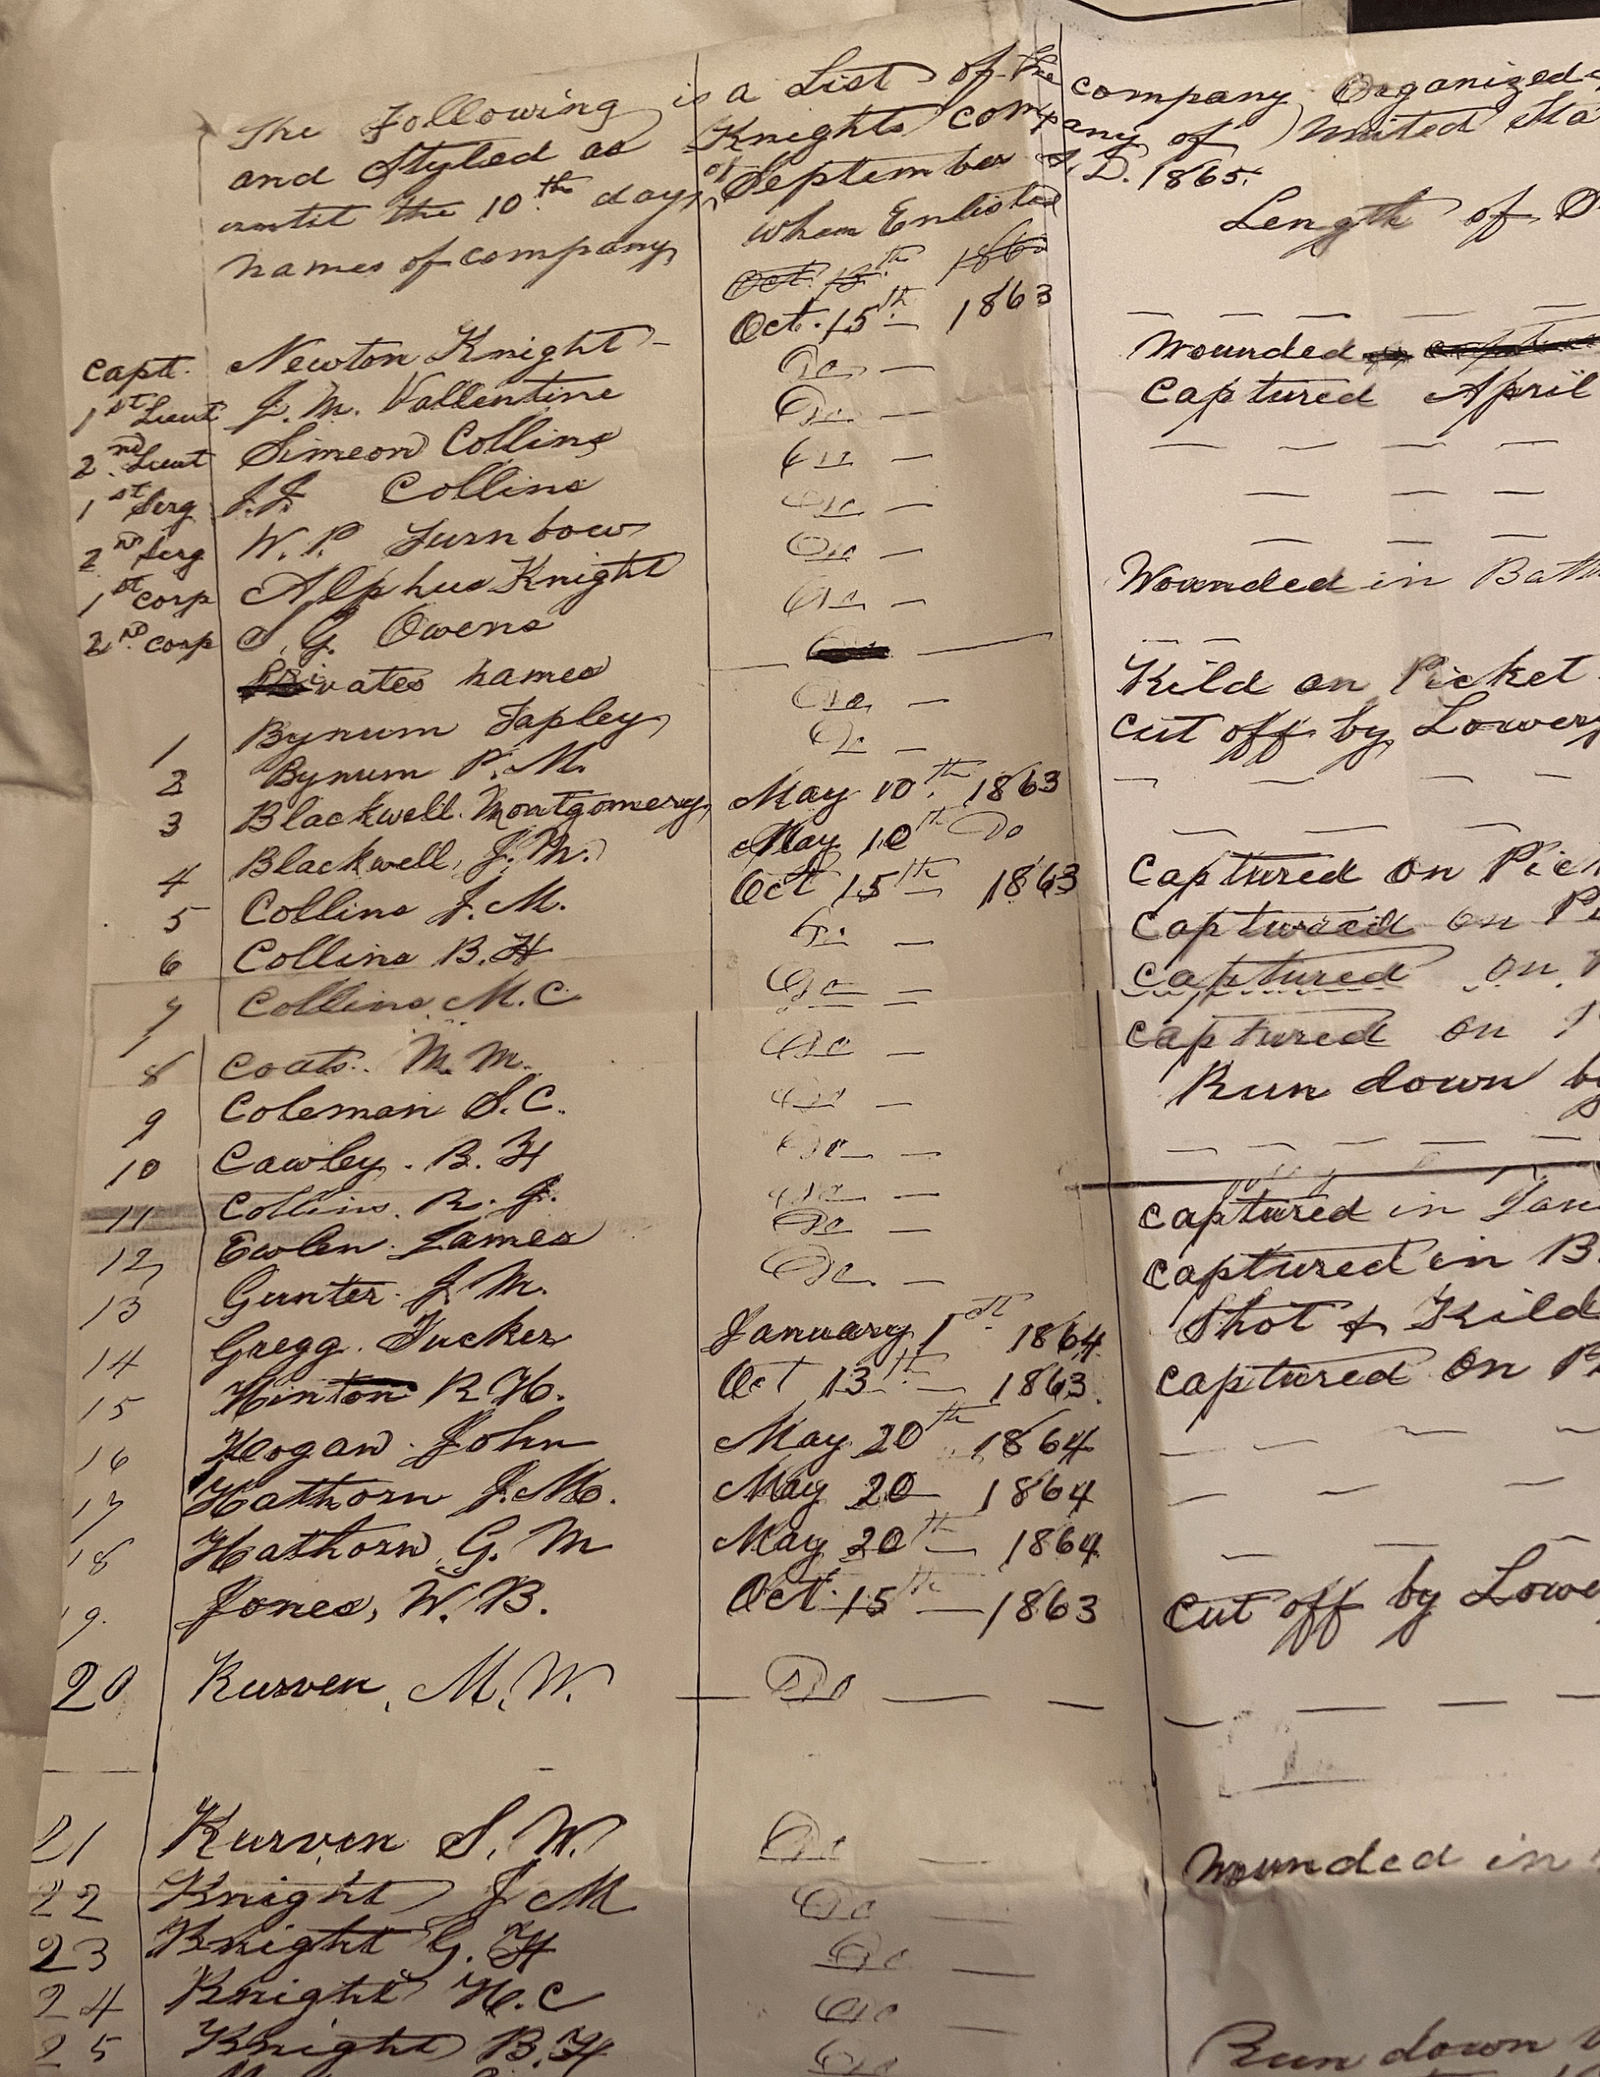 The Following is a List of the company Organized
and Styled as Knights company of United Sta
until the 10th day of September A.D. 1865.
names of company when Enlisted Length of
Oct. 13th 186
Capt. Newton Knight Oct. 15th 1863
1st Lieut J. M. Vallentine Do Wounded
2nd Lieut Simeon Collins Do Captured April
1st Serg J.J. Collins Do
2nd Serg W. P. Turnbow Do
1st Corp Alpheus Knight Do
2nd Corp S. G. Owens Do Wounded in Batt
Privates names
1 Bynum Tapley Do Kild on Picket
2 Bynum P. M. Do cut off by Lowery
3 Blackwell Montgomery May 10th 1863
4 Blackwell, J. M. May 10th Do
5 Collins J. M. Oct 15th 1863 Captured on Pic
6 Collins B. H Do Captured on Pi
7 Collins M. C Do Captured on
8 Coats. M. M. Do captured on
9 Coleman S. C. Do Run down by
10 Cawley. B. H Do
11 Collins. R. J. Do captured in Jan
12 Ewlen. James Do captured in B
13 Gunter. J. M. Do Shot & Kild
14 Gregg. Tucker January 1st 1864 captured on P
15 Hinton R. H. Oct 13th 1863
16 Hogan. John May 20th 1864
17 Hathorn J. M. May 20 1864
18 Hathorn G. M May 20th 1864
19. Jones, W. B. Oct. 15th 1863 cut off by Lowe
20 Kurven, M. W. Do
21 Kurven S. W. Do Wounded in
22 Knight J M Do
23 Knight G. H Do
24 Knight H. C Do
25 Knight B. H Do Run down